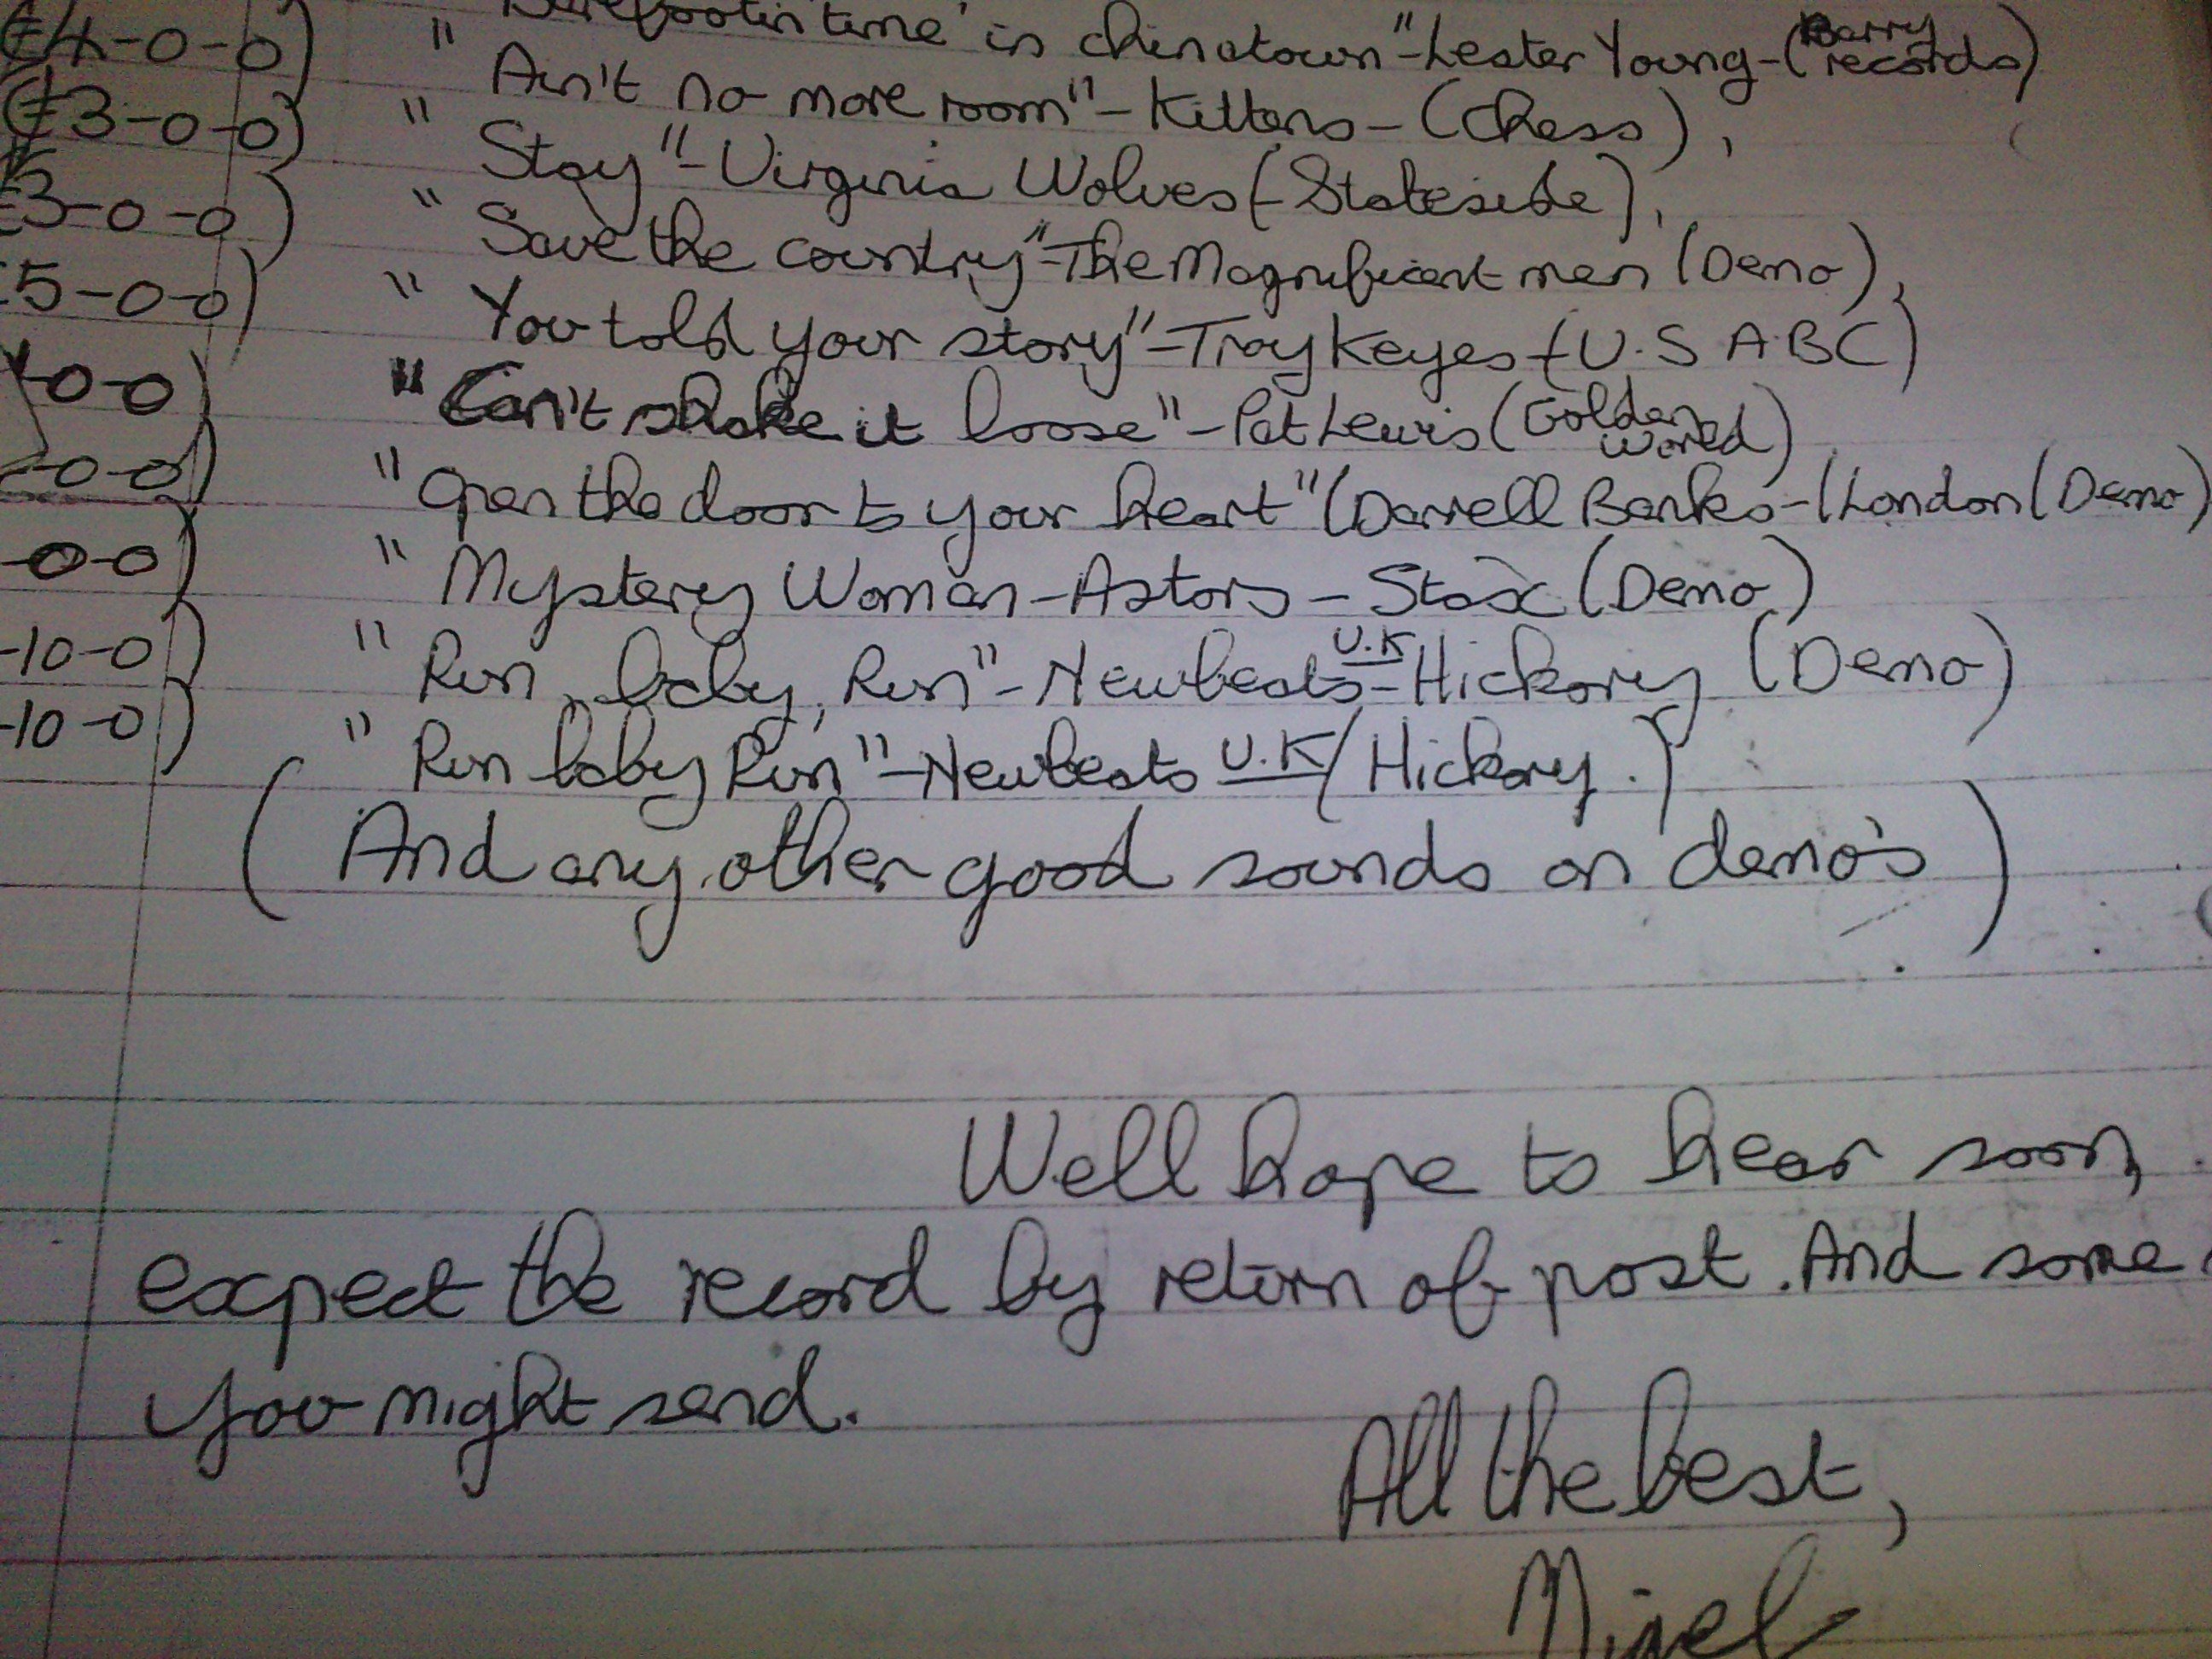 £4-0-0) " Barefootin' time in chinatown" - Lester Young - (Barry records)
(£3-0-0) " Ain't no more room" - Kittens - (Chess),
3-0-0) " Stay" - Virginia Wolves (- Stateside),
5-0-0) " Save the country" - The Magnificent men (Demo),
-0-0) " You told your story" - Troy Keyes - (U.S A.B.C)
-0-0) " Can't shake it loose" - Pat Lewis (Golden World)
-0-0) " Open the door to your heart" (Darrell Banks - (London (Demo)
-10-0) " Mystery Woman - Astors - Stax (Demo)
-10-0) " Run, baby, Run" - Newbeats - U.K Hickory (Demo)
" Run baby Run" - Newbeats U.K / Hickory.)
( And any other good sounds on demo's )
Well hope to hear soon,
expect the record by return of post. And some
you might send.
All the best,
Nigel